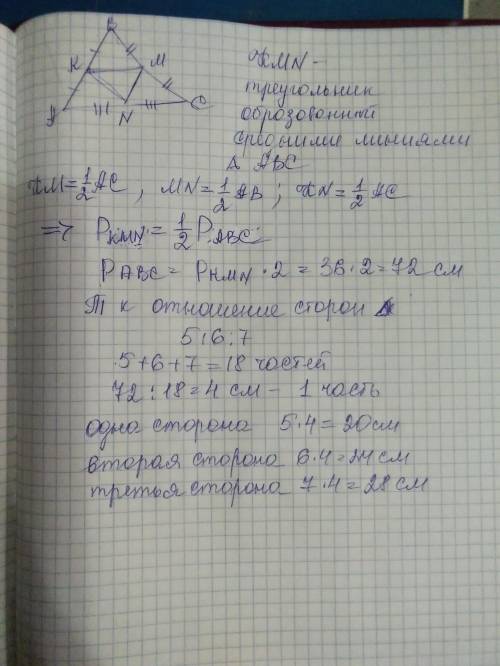 B
K M
A N C
KMN -
треугольник
образованный
средними линиями
Δ ABC
KM = 1/2 AC , MN = 1/2 AB ; KN = 1/2 AC
=> P KMN = 1/2 P ABC
P ABC = P KMN · 2 = 36 · 2 = 72 см
Т к отношение сторон
5:6:7
5+6+7 = 18 частей
72 : 18 = 4 см - 1 часть
одна сторона 5·4 = 20 см
вторая сторона 6·4 = 24 см
третья сторона 7·4 = 28 см